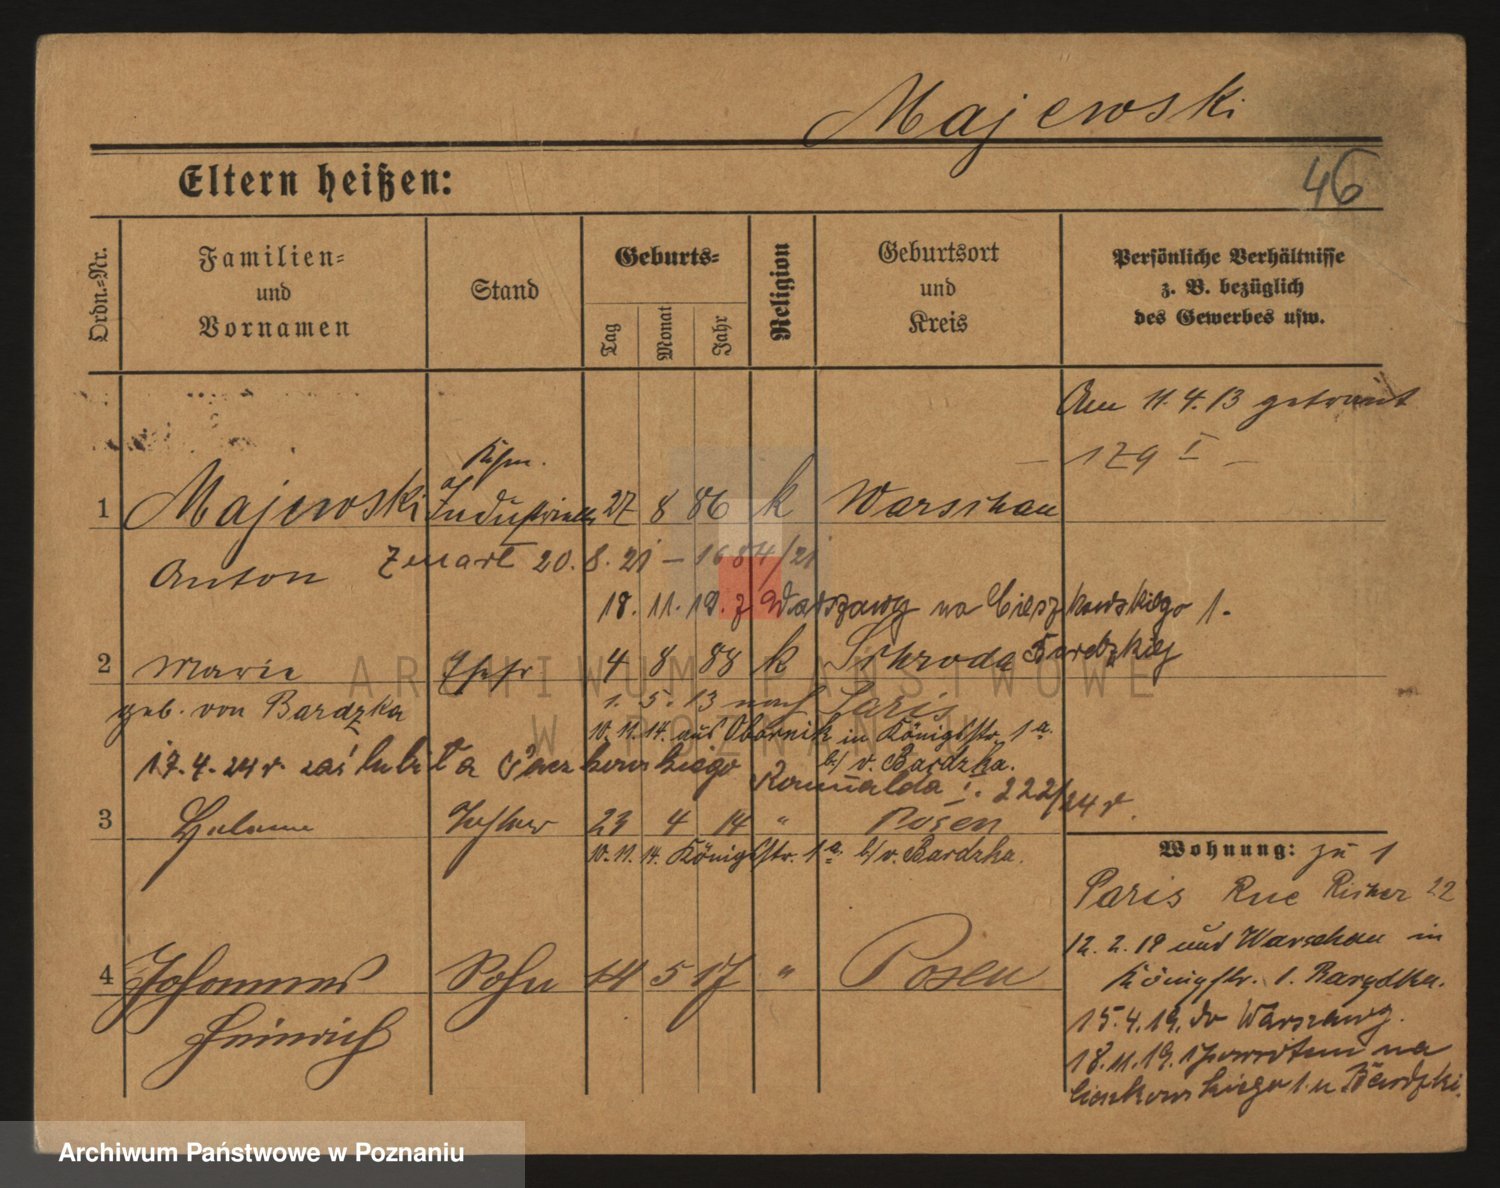 Majewski
Eltern heißen:
46
Ordn.-Nr.
Familien-
und
Vornamen
Stand
Geburts-
Tag
Monat
Jahr
Religion
Geburtsort
und
Kreis
Persönliche Verhältnisse
z. B. bezüglich
des Gewerbes usw.
Am 11.4.13 getraut
Kfm.
1 Majewski Industrieller 27 8 86 k Warschau
Anton
zmarł 20.8.21 – 1684/21
18.11.19. z Warszawy na Cieszkowskiego 1.
2 Marie Ehefr 4 8 88 k Schroda
geb. von Bardzka
1. 5. 13 nach Paris
10.11.14. aus Obornik in Königsstr. 1a.
b/ v. Bardzka.
17.4.24 r. zaślubiła
Romualda I. 222/24 r.
3 Helene Tochter 23 4 14 " Posen
10.11.14. Königsstr. 1a. b/ v. Bardzka.
4 Johannes Sohn 14 5 17 " Posen
Heinrich
Wohnung: zu 1
Paris Rue 22
12.2.19 und Warschau in
Königstr. 1.
15.4.19. do Warszawy.
18.11.19. na
Cieszkowskiego 1. u
ARCHIWUM PAŃSTWOWE
W POZNANIU
Archiwum Państwowe w Poznaniu